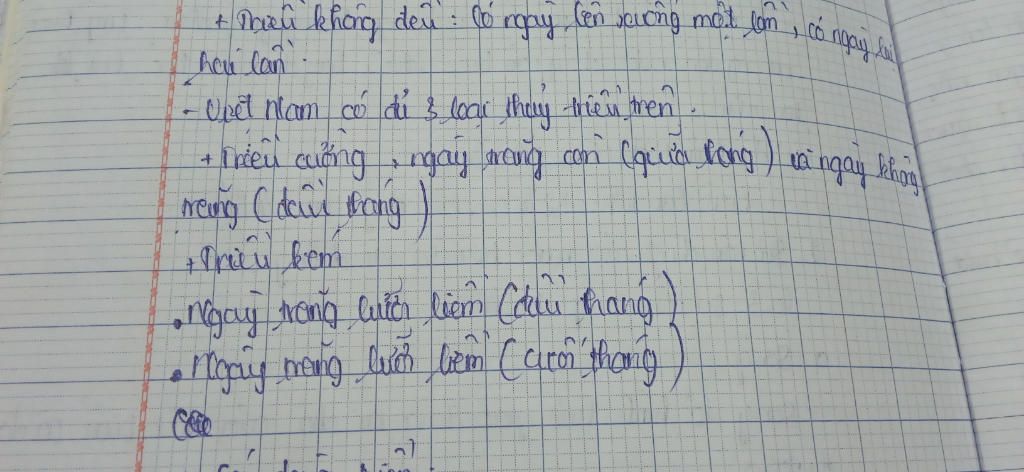 + Triều không đều: Có ngày lên xuống một lần, có ngày lại
hai lần.
- Việt Nam có đủ 3 loại thủy triều trên.
+ Triều cường, ngày trăng tròn (giữa tháng) và ngày không
trăng (đầu tháng)
+ Triều kém
. Ngày trăng lưỡi liềm (đầu tháng)
. Ngày trăng lưỡi liềm (cuối tháng)